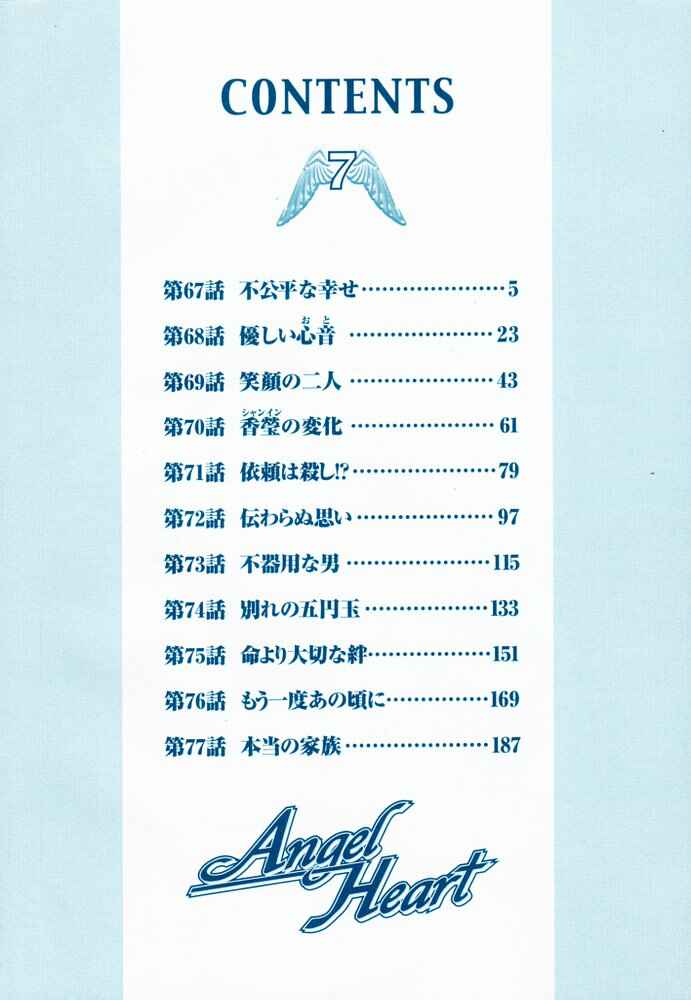 CONTENTS
7
第67話 不公平な幸せ……………………5
おと
第68話 優しい心音 ……………………23
第69話 笑顔の二人 ……………………43
シャンイン
第70話 香瑩の変化 ……………………61
第71話 依頼は殺し!?……………………79
第72話 伝わらぬ思い……………………97
第73話 不器用な男 ……………………115
第74話 別れの五円玉…………………133
第75話 命より大切な絆…………………151
第76話 もう一度あの頃に……………169
第77話 本当の家族……………………187
Angel
Heart